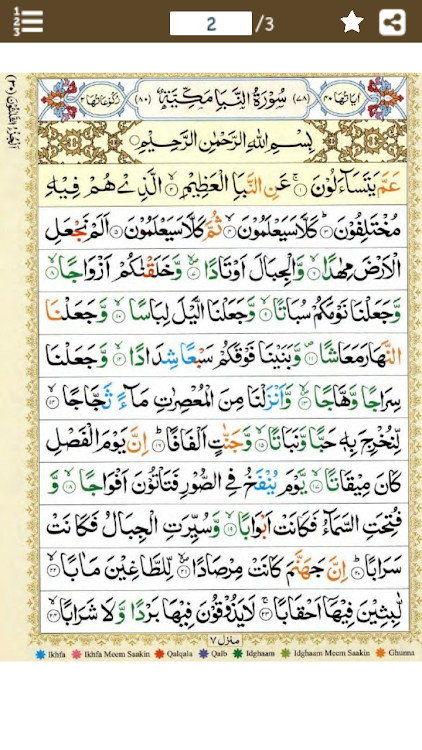 1 2 3
2 /3
اٰيَاتُهَا ٤٠ (٧٨) سُوْرَةُ النَّبَاِ مَكِّيَّةٌ (٨٠) رُكُوْعَاتُهَا ٢
بِسْمِ اللّٰهِ الرَّحْمٰنِ الرَّحِيْمِ
عَمَّ يَتَسَآءَلُوْنَ ۚ‏١ عَنِ النَّبَاِ الْعَظِيْمِ ۙ‏٢ الَّذِيْ هُمْ فِيْهِ
مُخْتَلِفُوْنَ ؕ‏٣ كَلَّا سَيَعْلَمُوْنَ ۙ‏٤ ثُمَّ كَلَّا سَيَعْلَمُوْنَ ٥ اَلَمْ نَجْعَلِ
الْاَرْضَ مِهٰدًا ۙ‏٦ وَّالْجِبَالَ اَوْتَادًا ۪ۙ‏٧ وَّخَلَقْنٰكُمْ اَزْوَاجًا ۙ‏٨
وَّجَعَلْنَا نَوْمَكُمْ سُبَاتًا ۙ‏٩ وَّجَعَلْنَا الَّيْلَ لِبَاسًا ۙ‏١٠ وَّجَعَلْنَا
النَّهَارَ مَعَاشًا ۪‏١١ وَّبَنَيْنَا فَوْقَكُمْ سَبْعًا شِدَادًا ۙ‏١٢ وَّجَعَلْنَا
سِرَاجًا وَّهَّاجًا ۪ۙ‏١٣ وَّاَنْزَلْنَا مِنَ الْمُعْصِرٰتِ مَآءً ثَجَّاجًا ۙ‏١٤
لِّنُخْرِجَ بِهٖ حَبًّا وَّنَبَاتًا ۙ‏١٥ وَّجَنّٰتٍ اَلْفَافًا ؕ‏١٦ اِنَّ يَوْمَ الْفَصْلِ
كَانَ مِيْقَاتًا ۙ‏١٧ يَّوْمَ يُنْفَخُ فِي الصُّوْرِ فَتَاْتُوْنَ اَفْوَاجًا ۙ‏١٨ وَّ
فُتِحَتِ السَّمَآءُ فَكَانَتْ اَبْوَابًا ۙ‏١٩ وَّسُيِّرَتِ الْجِبَالُ فَكَانَتْ
سَرَابًا ؕ‏٢٠ اِنَّ جَهَنَّمَ كَانَتْ مِرْصَادًا ۪ۙ‏٢١ لِّلطَّاغِيْنَ مَاٰبًا ۙ‏٢٢
لّٰبِثِيْنَ فِيْهَآ اَحْقَابًا ۚ‏٢٣ لَا يَذُوْقُوْنَ فِيْهَا بَرْدًا وَّلَا شَرَابًا ۙ‏٢٤
منزل ٧
Ikhfa Ikhfa Meem Saakin Qalqala Qalb Idghaam Idghaam Meem Saakin Ghunna